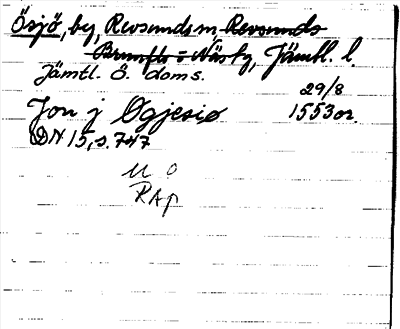 Ösjö, by, Revsunds sn, Revsunds
Brunflo o Näs tg, Jämtl. l.
Jämtl. ö. doms.
29/8
Jon j Øgjesiø 1553 or.
DN 15, s. 747
U O
RAp